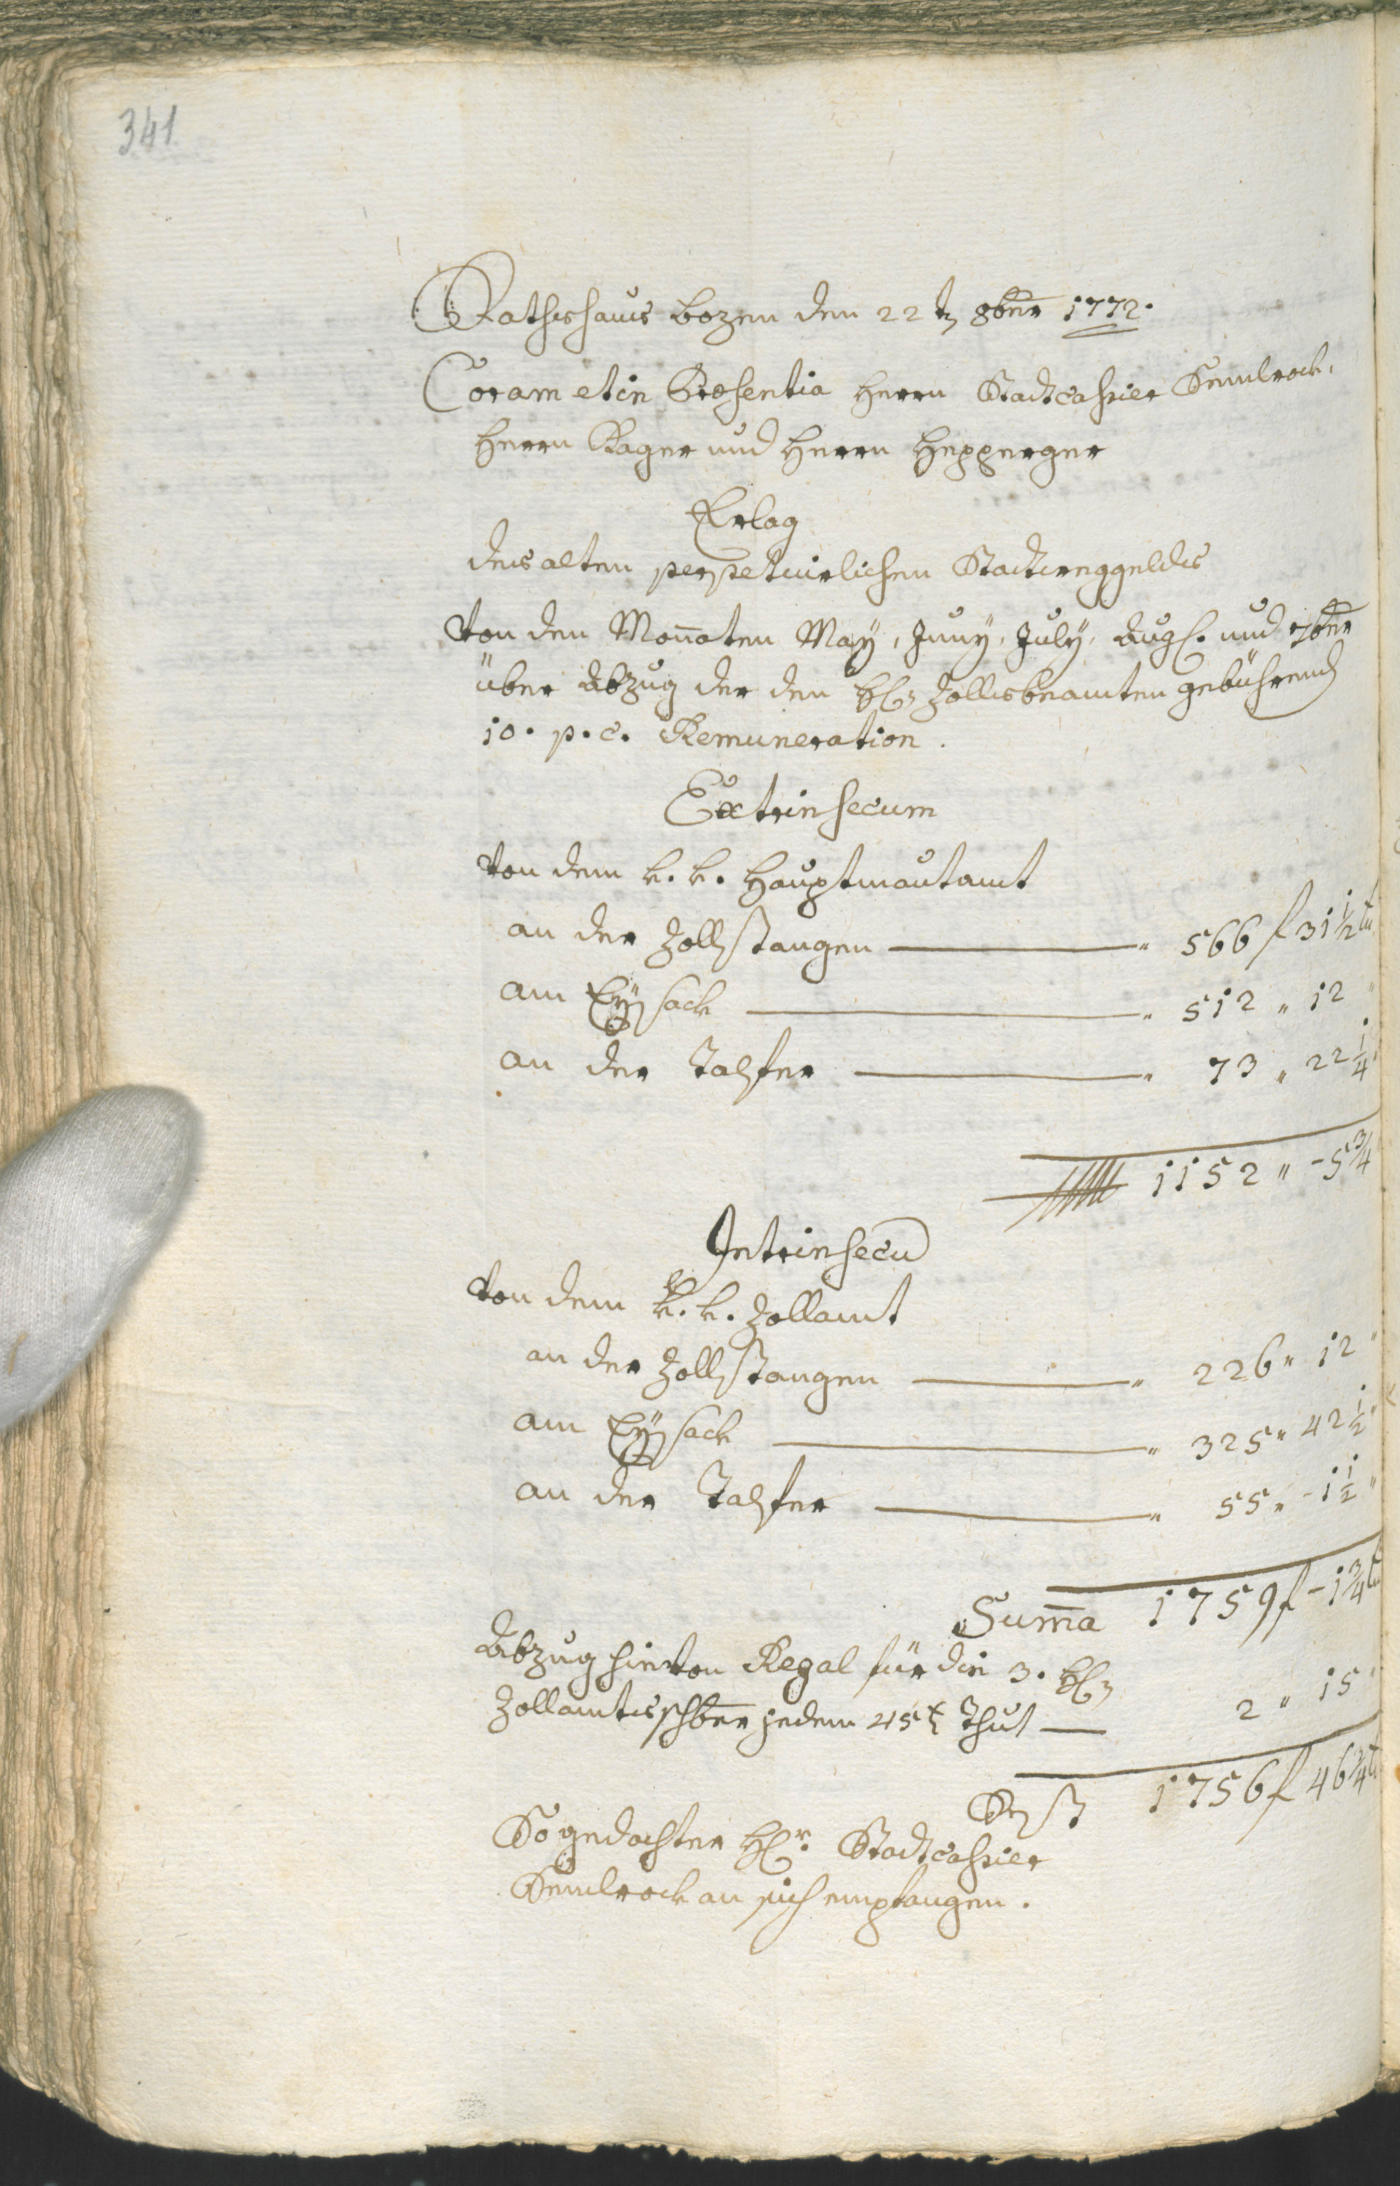 341
Rathshaus Bozen den 22t 8ber 1772.
Coram et in Præsentia Herrn Stadtcassier Semlrock,
Herrn Rager und Herrn Hepperger
Erlag
des alten perpetuirlichen Stadtweggeldts
von den Monnaten May, Juny, July, Augs. und 7ber
über Abzug der den Hh Zollsbeamten gebührend
10. p. c. Remuneration.
Extrinsecum
von dem k. k. Hauptmautamt
an der Zollstangen — " 566 f 31 1/2 x
am Eysack — " 512 " 12 "
an der Talfer — " 73 " 22 1/4 "
1152 " - 5 3/4
Intrinsecu
von dem k. k. Zollamt
an der Zollstangen — " 226 " 12 "
am Eysack — " 325 " 42 1/2 "
an der Talfer — " 55 " - 1 1/2 "
Suma 1759 f - 1 3/4 x
Abzug hievon Regal für die 3. Hh
Zollamtsschber jedem 45 x thut — 2 " 15 "
Rest 1756 f 46 3/4 x
So gedachter Hr. Stadtcassier
Semlrock an sich empfangen.